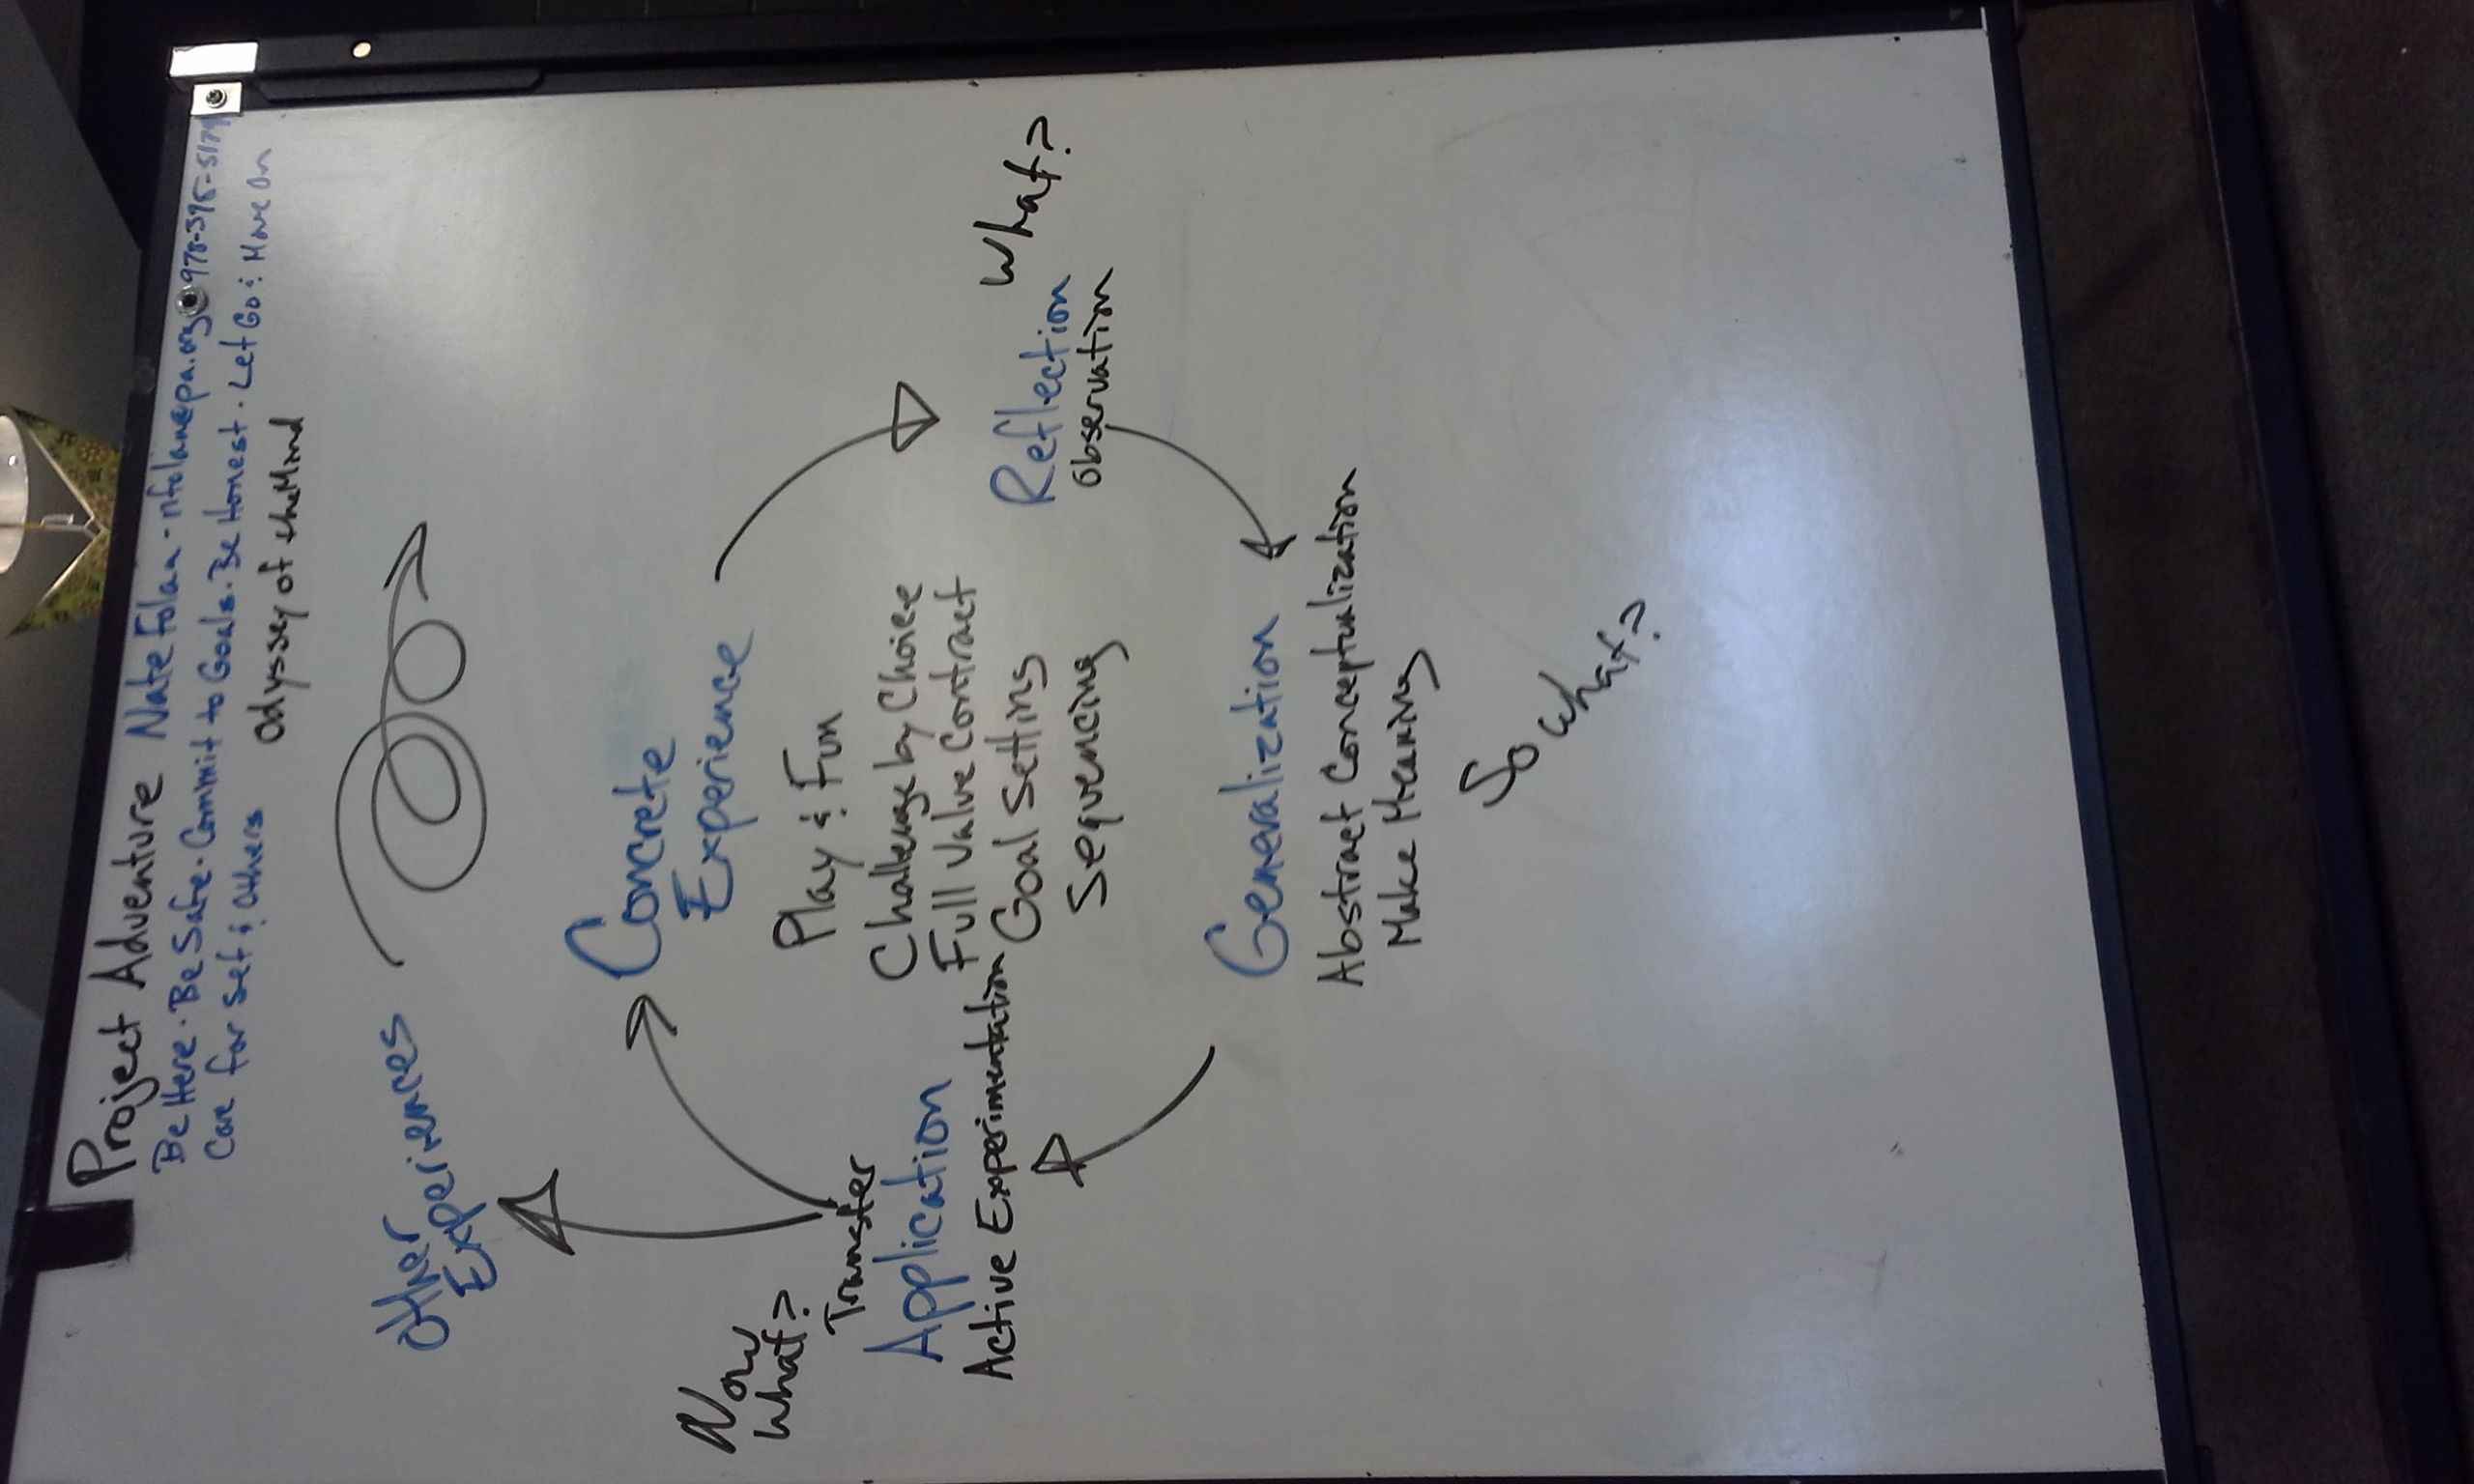 Project Adventure Nate Folan - nfolan@pa.org
Be Here. Be Safe. Commit to Goals. Be Honest. Let Go & Move On
Care for Self & Others
Odyssey of the Mind
Other
Experiences
Concrete
Experience
Now
What?
Transfer
Application
Active Experimentation
Play & Fun
Challenge by Choice
Full Value Contract
Goal Setting
Sequencing
What?
Reflection
Observation
Generalization
Abstract Conceptualization
Make Meaning
So What?